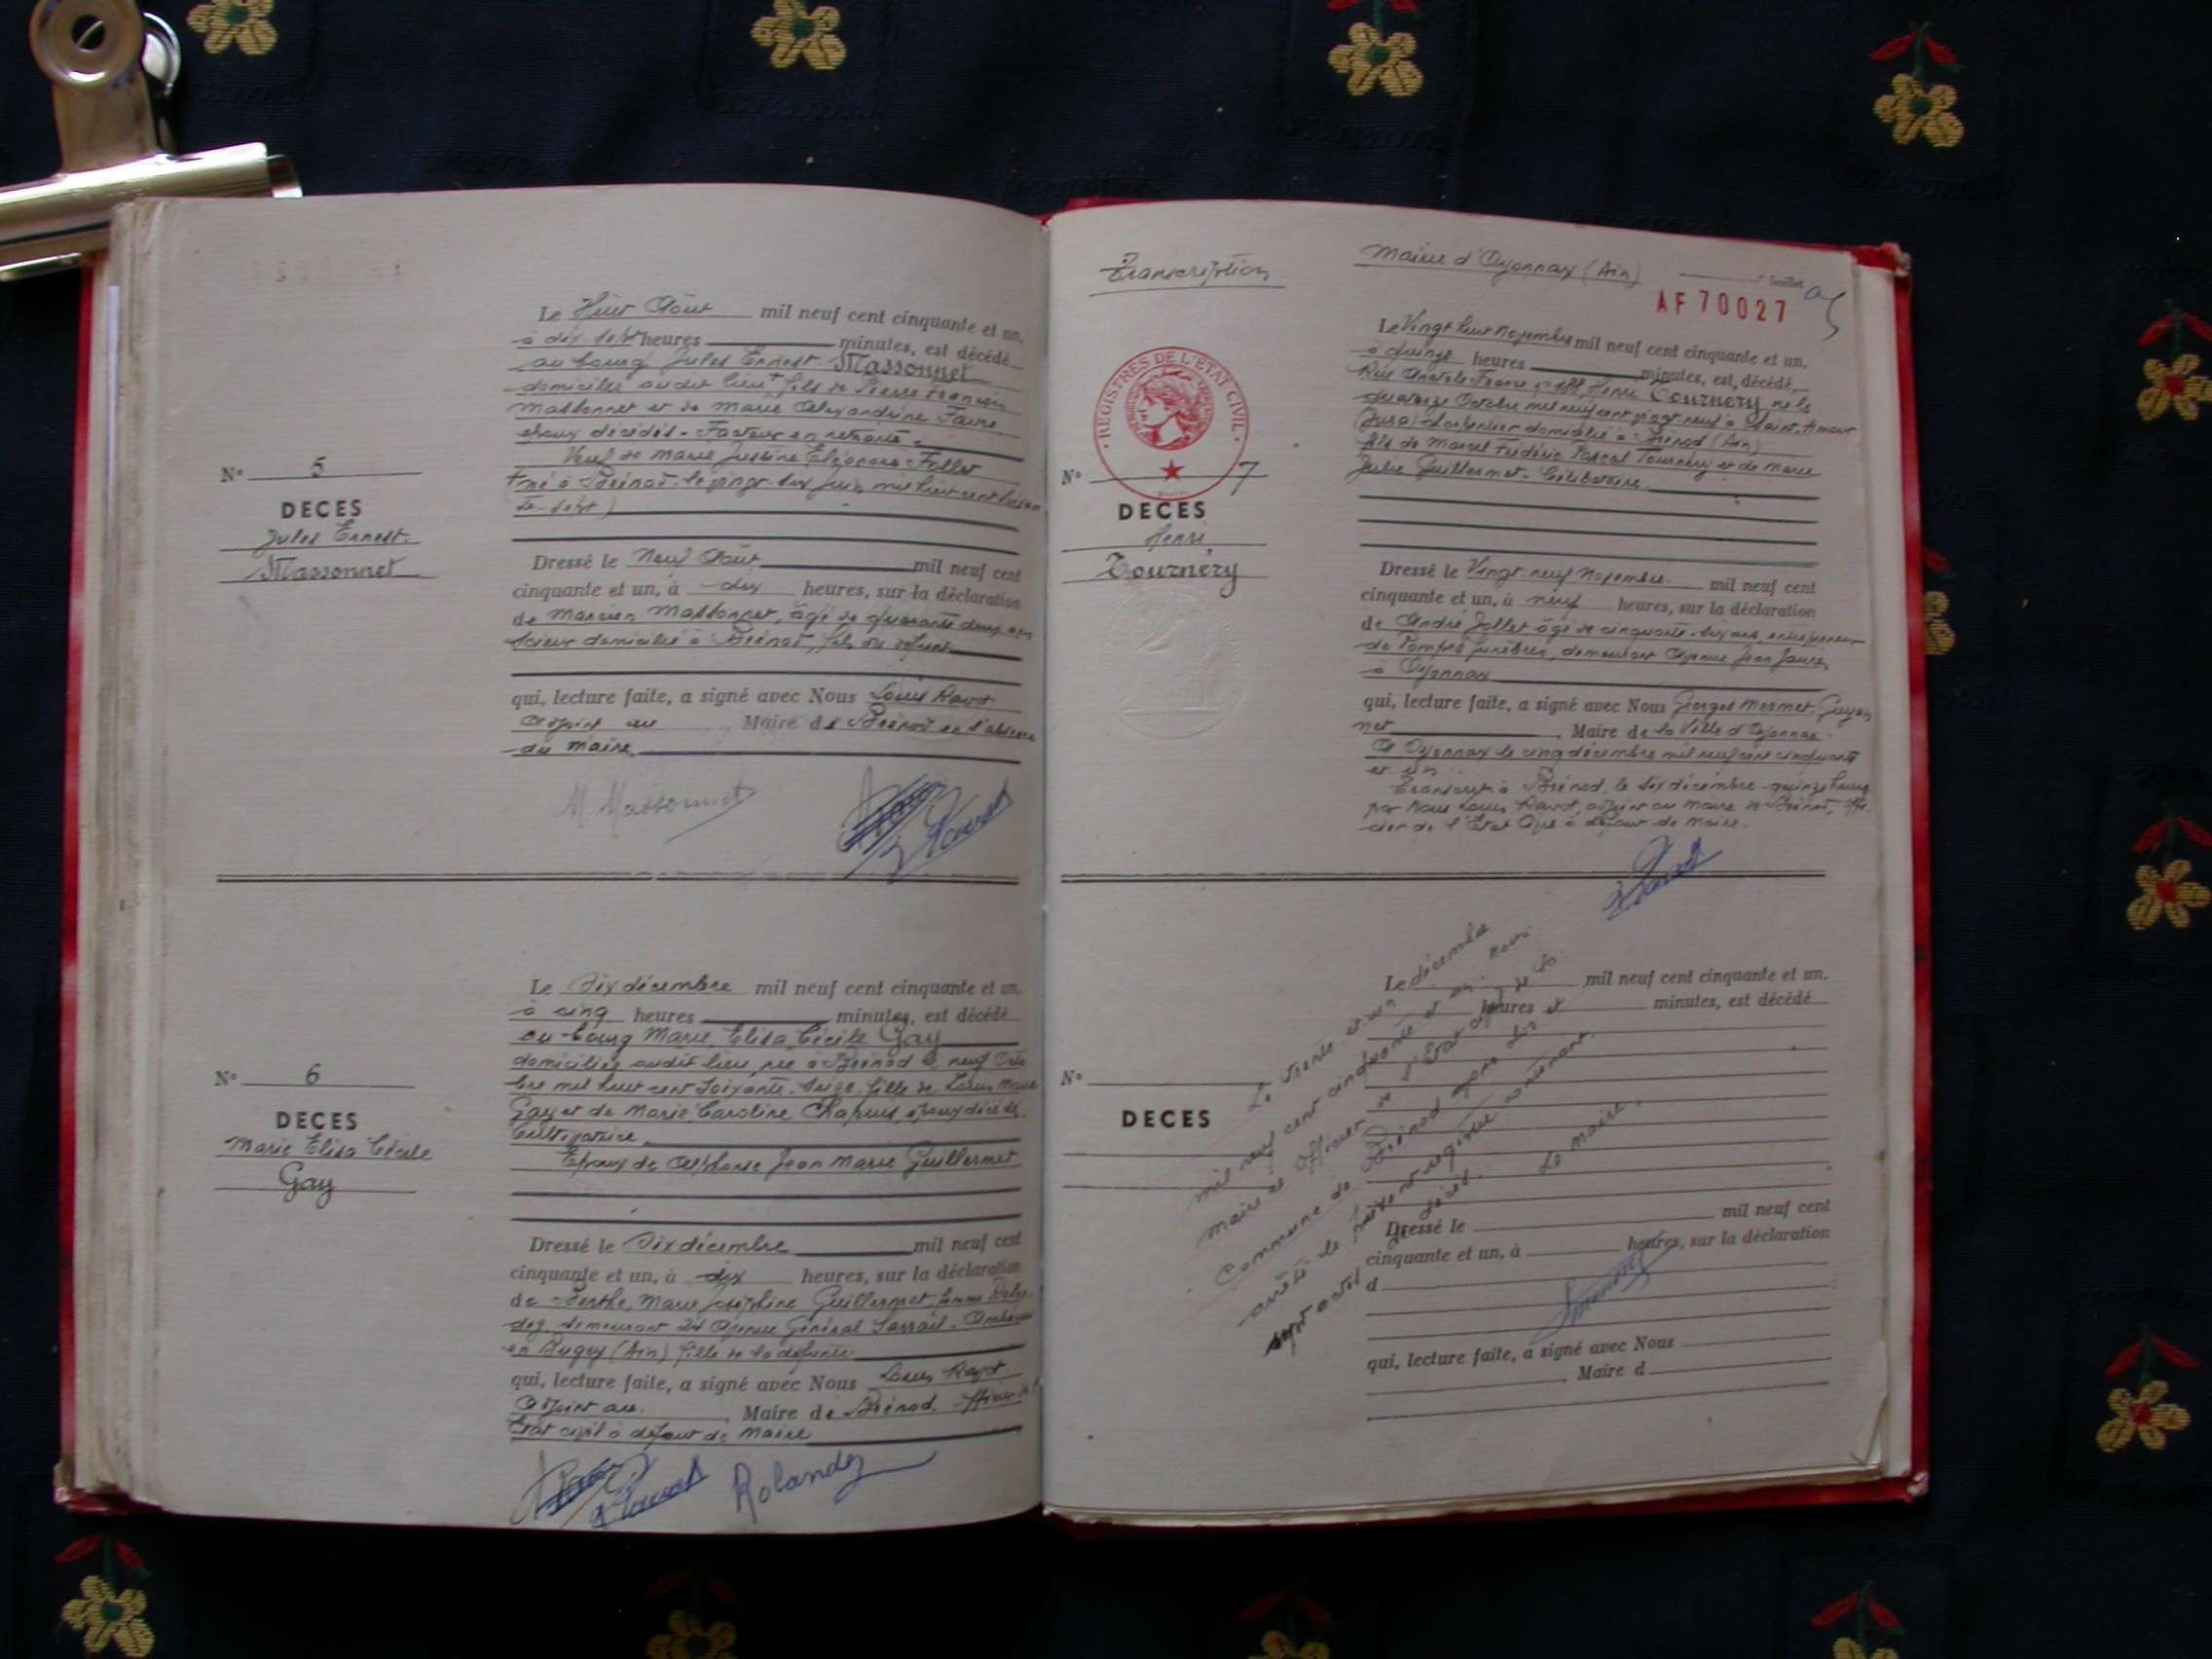 Le Huit Août mil neuf cent cinquante et un,
à dix sept heures minutes, est décédé
au bourg Jules Ernest Massonnet
domicilié audit lieu + fils de Pierre François
Massonnet et de Marie Alexandrine Favre
époux décédés - Facteur en retraite -
Veuf de Marie Justine Eléonore Follet
+ né à Brénod le vingt-six juin mil huit cent soixan
te-sept)
N° 5
DECES
Jules Ernest
Massonnet
Dressé le Neuf Août mil neuf cent
cinquante et un, à dix heures, sur la déclaration
de Massonnet, âgé de quarante deux ans
scieur domicilié à Brénod, fils du défunt
qui, lecture faite, a signé avec Nous Louis Ravot
Adjoint au Maire de Brénod en l'absence
du maire
M Massonnet
Le Six décembre mil neuf cent cinquante et un,
à cinq heures minutes, est décédé
au bourg Marie, Elisa, Cécile Gay
domiciliée audit lieu, née à Brénod le neuf Octo
bre mil huit cent soixante-seize, fille de Louis Marie
Gay et de Marie Caroline Chapuis, époux décédés.
Cultivatrice
Epoux de Alphonse Jean Marie Guillermet
N° 6
DECES
Marie Elisa Cécile
Gay
Dressé le Six décembre mil neuf cent
cinquante et un, à dix heures, sur la déclaration
de Berthe, Marie Joséphine Guillermet, femme Rolan
dez demeurant 24 Avenue Général Sarrail - Ambérieu
en Bugey (Ain) fille de la défunte
qui, lecture faite, a signé avec Nous Louis Ravot
Adjoint au Maire de Brénod
Etat civil à défaut de Maire
Rolandez
Transcription
Mairie d'Oyonnax (Ain)
Feuillet
AF 70027
REGISTRES DE L'ETAT CIVIL
Le Vingt huit Novembre mil neuf cent cinquante et un,
à quinze heures minutes, est décédé
Rue Anatole-France Henri Tournery né le
quatorze Octobre mil neuf cent vingt neuf à Saint-Amour
(Jura) charpentier domicilié à Brénod (Ain)
fils de Marcel Frédéric Pascal Tournery et de Marie
Julie Guillermet - Célibataire
N° 7
DECES
Henri
Tournery
Dressé le Vingt-neuf Novembre mil neuf cent
cinquante et un, à neuf heures, sur la déclaration
de André Jollet âgé de cinquante-six ans, entrepreneur
de Pompes funèbres, demeurant Avenue Jean Jaurès
à Oyonnax
qui, lecture faite, a signé avec Nous Georges Mermet-Guyen
net, Maire de la Ville d'Oyonnax.
A Oyonnax le cinq décembre mil neuf cent cinquante
et un.
Transcrit à Brénod, le six décembre quinze heures
par Nous Louis Ravot, adjoint au maire de Brénod, offi-
cier de l'Etat Civil à défaut de Maire.
Le mil neuf cent cinquante et un.
heures minutes, est décédé
N°
DECES
Dressé le mil neuf cent
cinquante et un, à heures, sur la déclaration
d
qui, lecture faite, a signé avec Nous
Maire d
Le trente et un décembre
mil neuf cent cinquante et un nous
maire et Officier de l'Etat civil de la
commune de Brénod avons clos et
arrêté le présent registre contenant
sept actes de décès.
Le Maire,